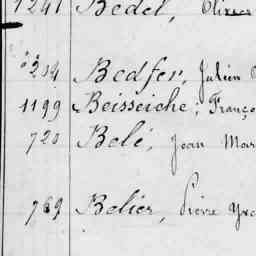 1241 Bedel, Olivier
204 Bedfer, Julien
1199 Beisseiche, Franço
720 Belé, Jean Mar
769 Belier, Pierre Yve